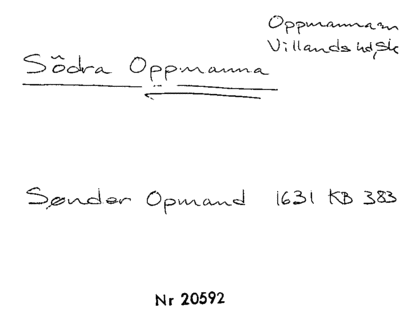 Oppmanna sn
Villands hd, Sk
Södra Oppmanna
Sønder Opmand 1631 KB 383
Nr 20592